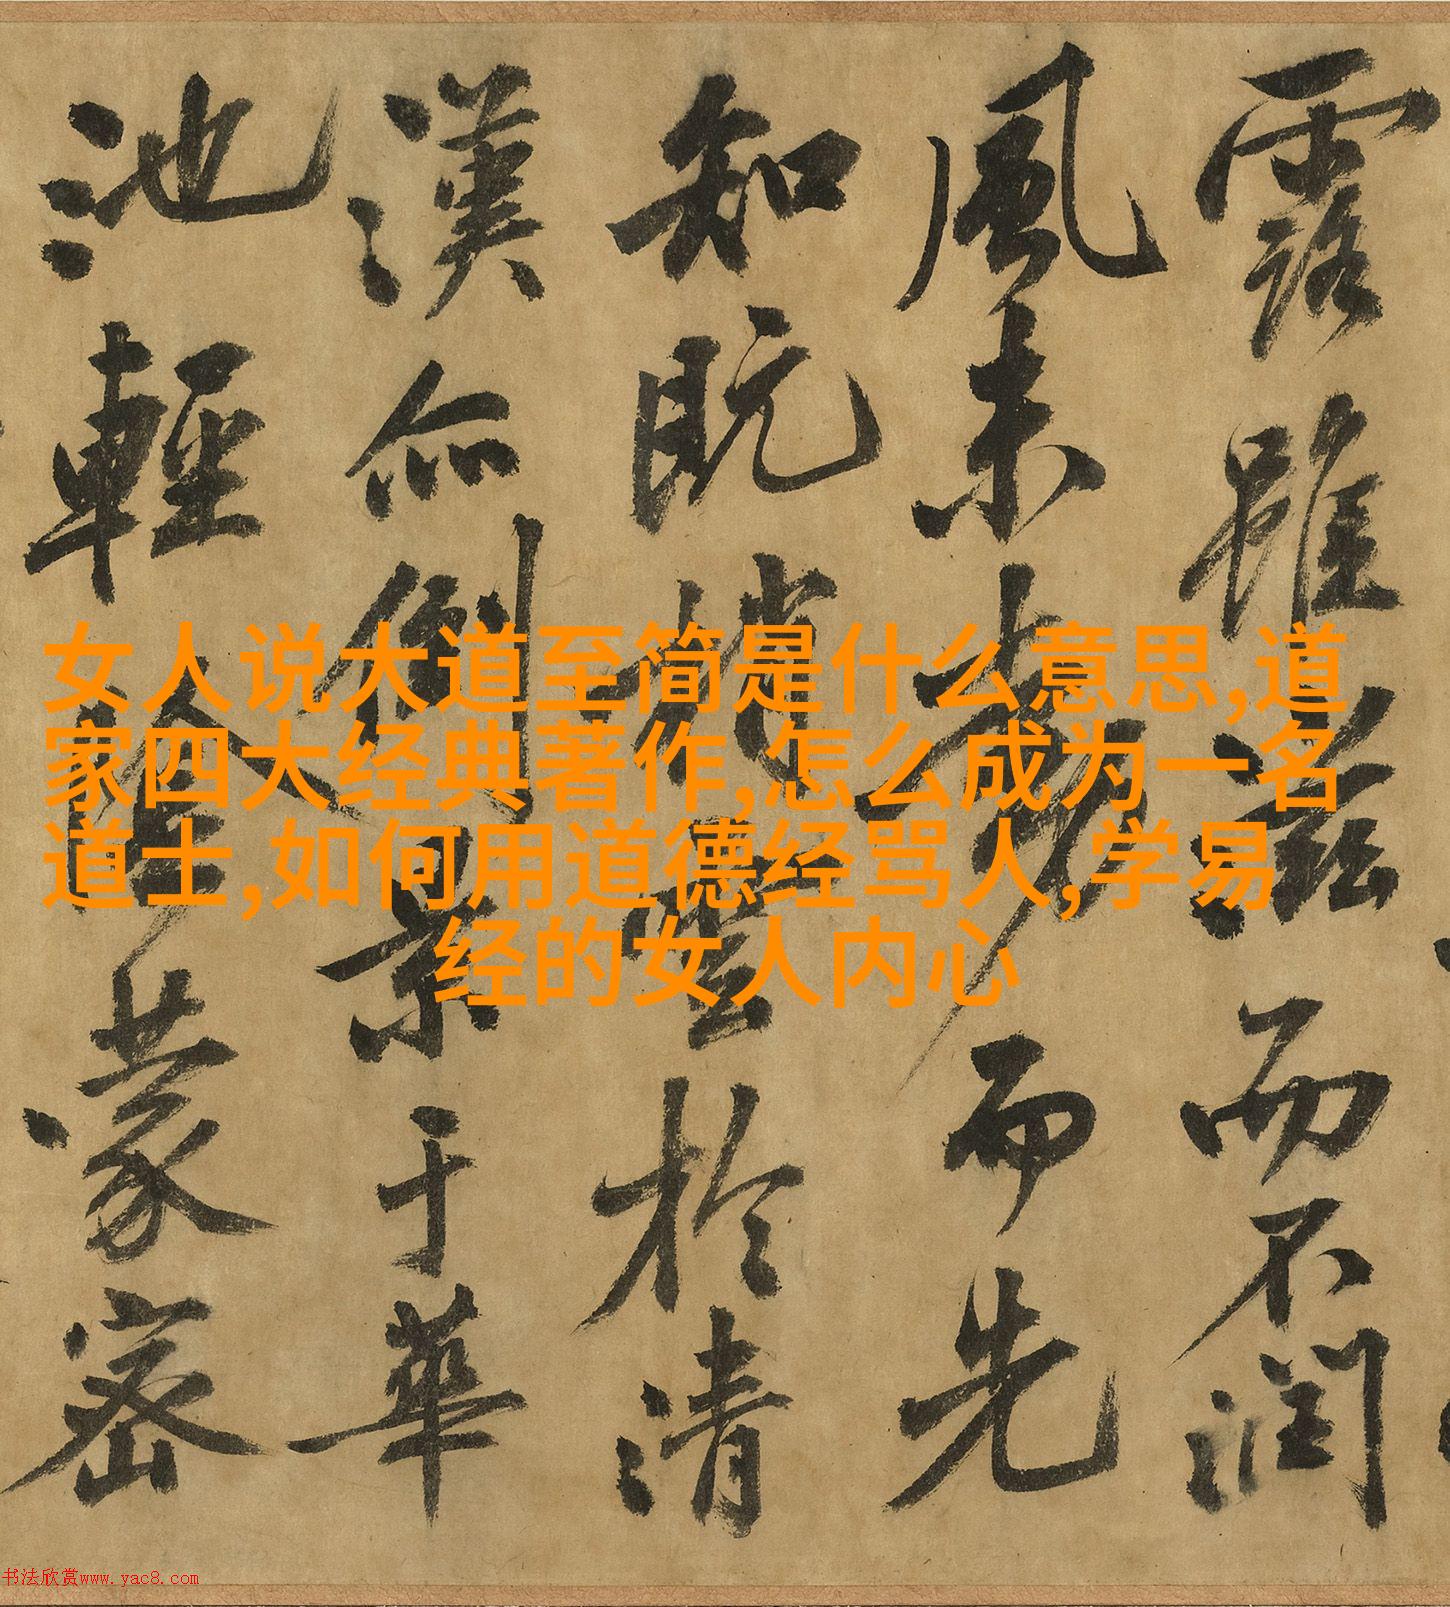 露雖滋而不潤
風未動而先
知既梢雲於清
漢亦倒景于華
池輕陰蒙密
女人说大道至简是什么意思,道
家四大经典著作,怎么成为一名
道士,如何用道德经骂人,学易
经的女人内心
书法欣赏www.yac8.com